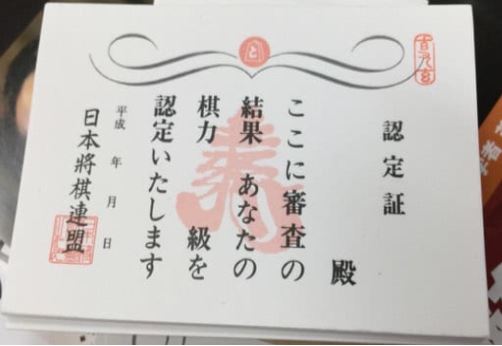 認定証
殿
ここに審査の
結果 あなたの
棋力 級を
認定いたします
平成 年 月 日
日本将棋連盟
と